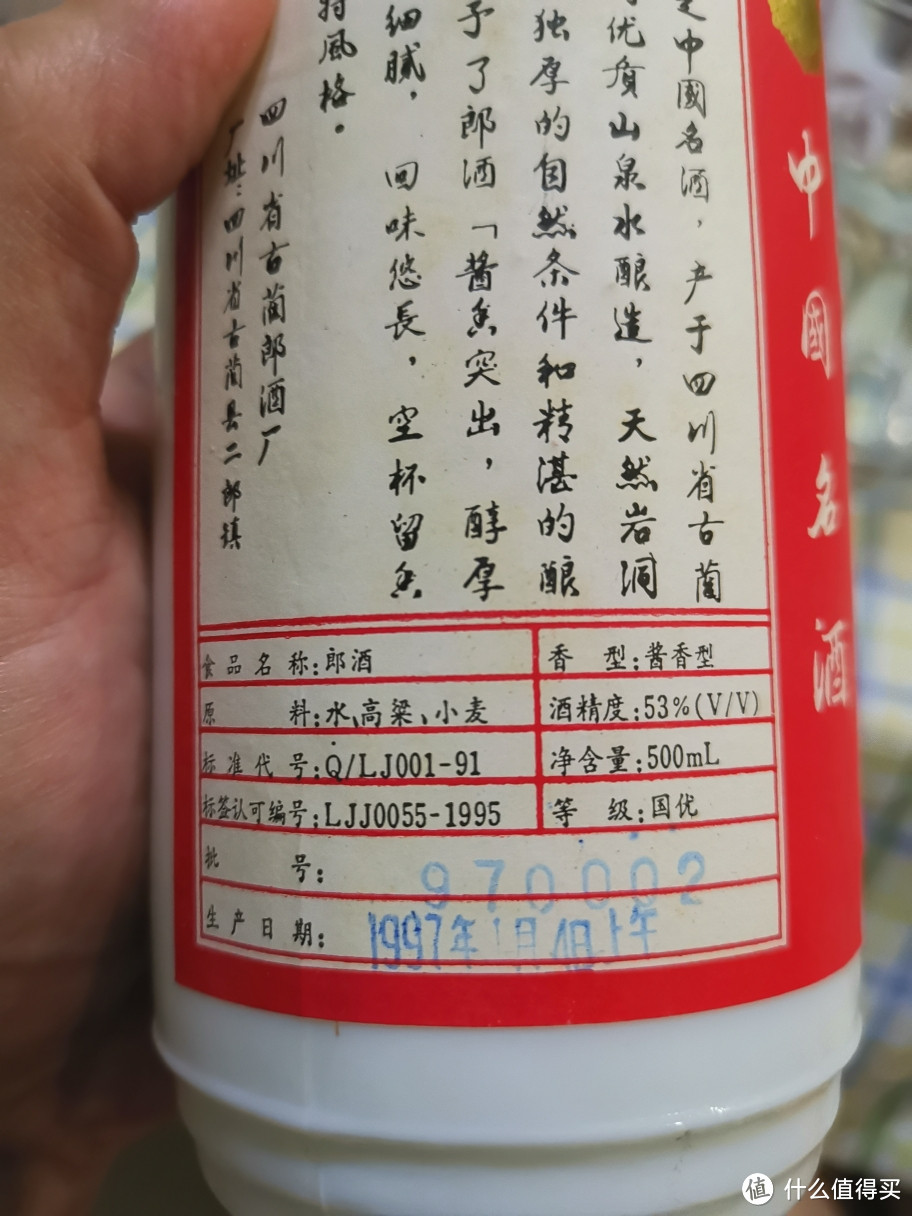 中國名酒，产于四川省古蔺
优质山泉水酿造，天然岩洞
独厚的自然条件和精湛的酿
予了郎酒「酱香突出，醇厚
细腻，回味悠長，空杯留香
風格。
四川省古蔺郎酒厂
厂址：四川省古蔺县二郎镇
中國名酒
食品名称:郎酒
香型:酱香型
原料:水、高粱、小麦
酒精度:53%(V/V)
标准代号:Q/LJ001-91
净含量:500mL
标签认可编号:LJJ0055-1995
等级:国优
批号: 970002
生产日期: 1997年1月4日上午
值 什么值得买